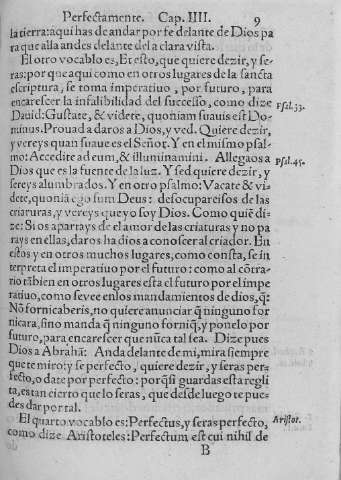 Perfectamente. Cap. IIII. 9
la tierra: aqui has de andar por fe delante de Dios pa
ra que alla andes delante del a clara vista.
El otro vocablo es, Et esto, que quiere dezir, y se-
ras: por que aqui como en otros lugares de la sancta
escriptura, se toma imperatiuo, por futuro, para
encarescer la infalibilidad del successo, como dize
Dauid: Gustate, & videte, quoniam suauis est Do-
Psal. 33.
minus. Prouad a daros a Dios, y ved. Quiere dezir,
y vereys quan suaue es el Señor. Y en el mismo psal-
mo: Accedite ad eum, & illuminamini. Allegaos a
Psal. 45.
Dios que es la fuente de la luz. Y sed quiere dezir, y
sereys alumbrados. Y en otro psalmo: Vacate & vi-
dete, quoniā ego sum Deus: desocupareisos de las
criaturas, y vereys que yo soy Dios. Como quiē di-
ze: Si os apartays de el amor de las criaturas y no pa
rays en ellas, daros ha dios a conoscer al criador. En
estos y en otros muchos lugares, como consta, se in
terpreta el imperatiuo por el futuro: como al cōtra-
rio tābien en otros lugares esta el futuro por el impe
ratiuo, como se vee en los mandamientos de dios, q̄:
Nō fornicaberis, no quiere anunciar q̄ ninguno for
nicara, sino manda q̄ ninguno forniq̄, y ponelo por
futuro, para encarescer que nūca tal sea. Dize pues
Dios a Abrahā: Anda delante de mi, mira siempre
que te miro: y se perfecto, quiere dezir, y seras per-
fecto, o date por perfecto: porq̄ si guardas esta regli
ta, es tan cierto que lo seras, que desde luego te pue-
des dar por tal.
El quarto vocablo es: Perfectus, y seras perfecto,
Aristot.
como dize Aristoteles: Perfectum est cui nihil de
B